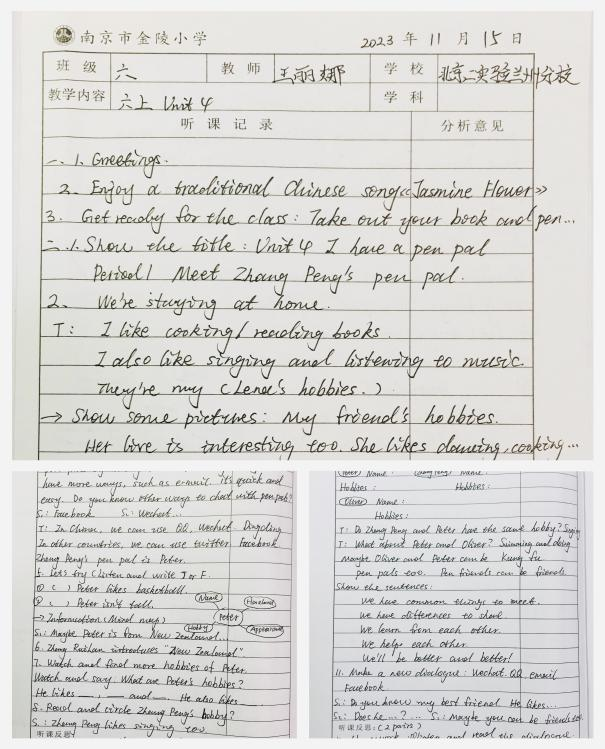 南京市金陵小学
2023 年 11 月 15 日
班级 六 教师 王丽娜 学校 北京二实验兰州分校
教学内容 六上 Unit 4 学科
听课记录 分析意见
一、1. Greetings.
2. Enjoy a traditional Chinese song《Jasmine Flower》
3. Get ready for the class: Take out your book and pen...
二、1. Show the title: Unit 4 I have a pen pal
Period 1 Meet Zhang Peng's pen pal.
2. We're staying at home.
T: I like cooking / reading books.
I also like singing and listening to music.
They're my (Lena's hobbies.)
→ Show some pictures: My friend's hobbies.
Her live is interesting too. She likes dancing, cooking...
have more ways, such as e-mail. it's quick and
easy. Do you know other ways to chat with pen pals?
S1: Facebook S2: Wechat...
T: In China, we can use QQ, Wechat Dingding
In other countries, we can use twitter Facebook
Zhang Peng's pen pal is Peter.
5. Let's try (Listen and write T or F.
① ( ) Peter likes basketball.
② ( ) Peter isn't tall.
→ Information (Mind map)
Name Peter Hobby Appearance
S1: Maybe Peter is from New Zealand...
6. Zhang Ruihan introduces "New Zealand"
7. Watch and find more hobbies of Peter.
Watch and say: What are Peter's hobbies?
He likes __, __ and __. He also likes
8. Read and circle Zhang Peng's hobby?
S: Zhang Peng likes singing too.
听课反思
Name: Name:
Hobbies: Hobbies:
Oliver Name:
Hobbies:
T: Do Zhang Peng and Peter have the same hobby? Singing
T: What about Peter and Oliver? Swimming and doing
Maybe Oliver and Peter can be kung fu
pen pals too. Pen friends can be friends.
Show the sentences:
We have common things to meet.
We have differences to share.
We learn from each other.
We help each other.
We'll be better and better!
11. Make a new dialogue: Wechat QQ email
Facebook
S1: Do you know my best friend He likes...
S2: Does he...? ... S1: Maybe you can be friends too.
听课反思: (2 pairs)